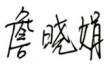 詹晓娟